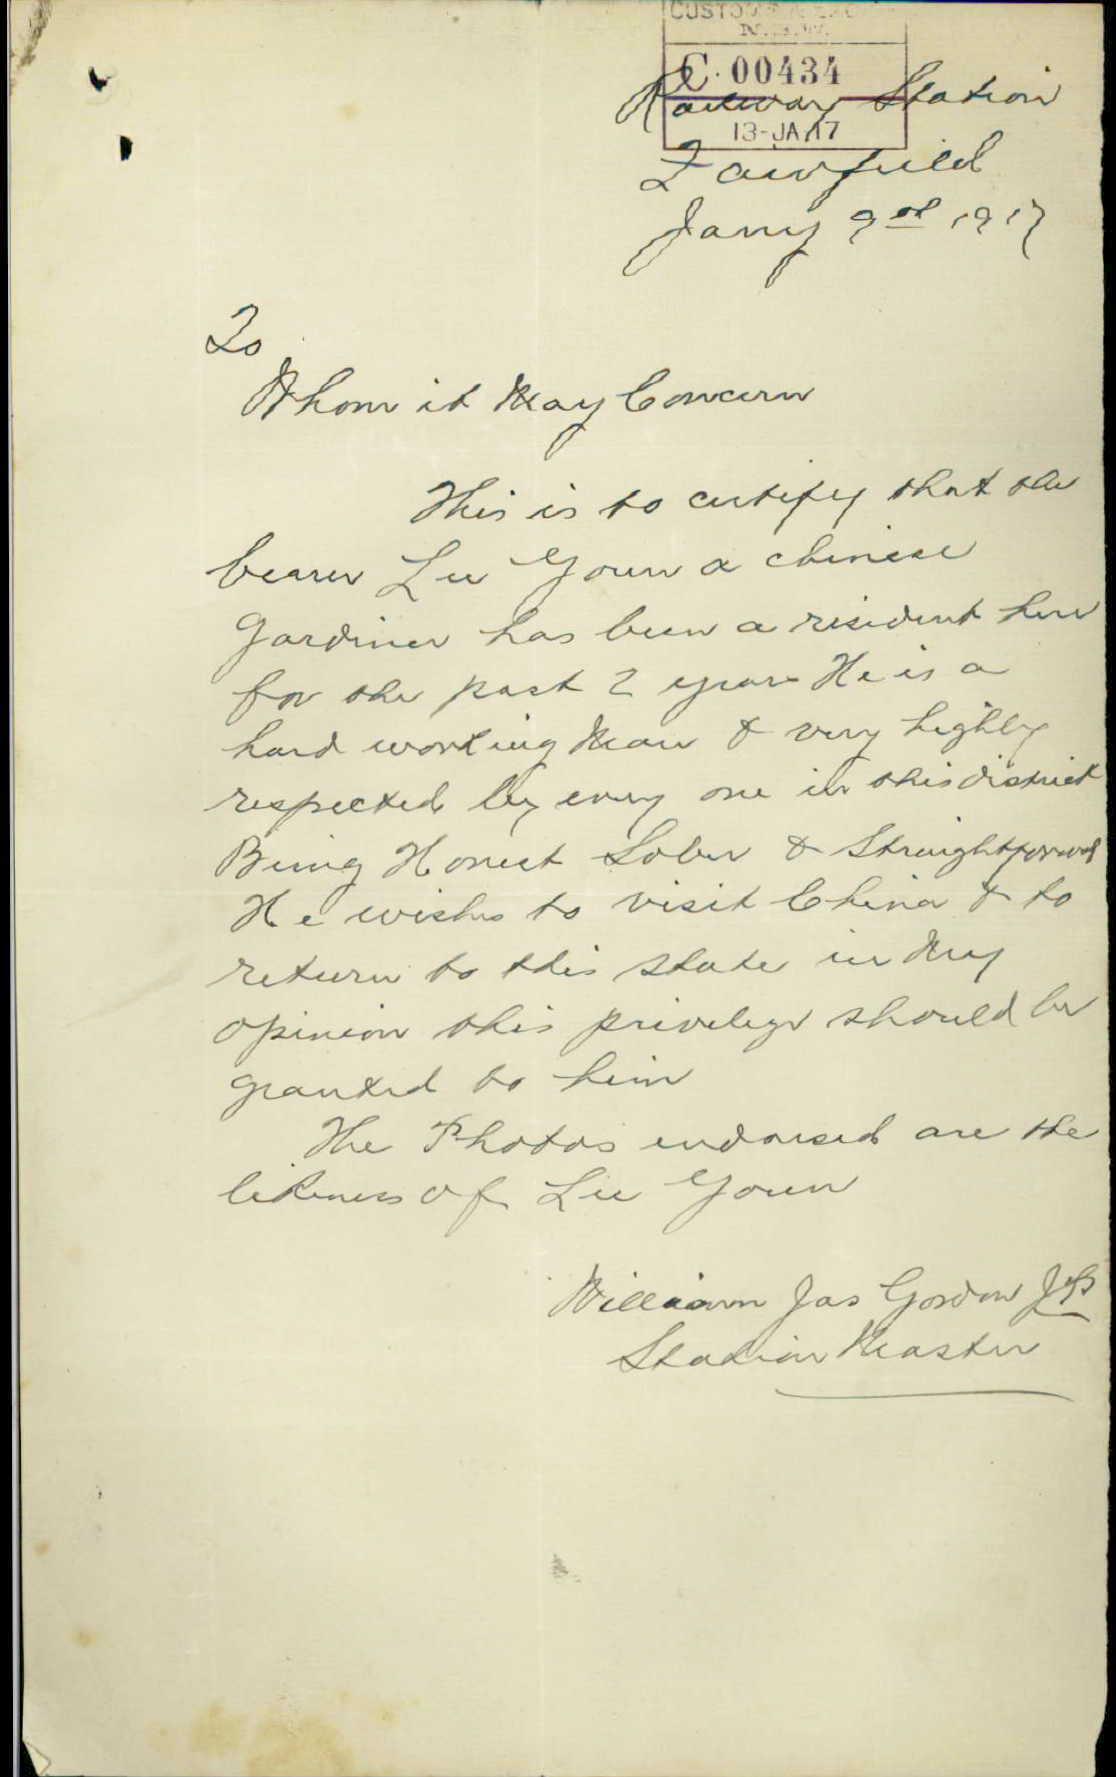 N.S.W.
C. 00434
Railway Station
13-JA 17
Fairfield
Jany 9th 1917
To
Whom it May Concern
This is to certify that the
bearer Lee Youn a chinese
Gardiner has been a resident here
for the past 2 years He is a
hard working Man & very highly
respected by every one in this district
Being Honest Sober & Straightforward
He wishes to visit China & to
return to this state in My
opinion this privilege should be
granted to him
The Photos endorsed are the
likeness of Lee Youn
William Jas Gordon JP
Station Master